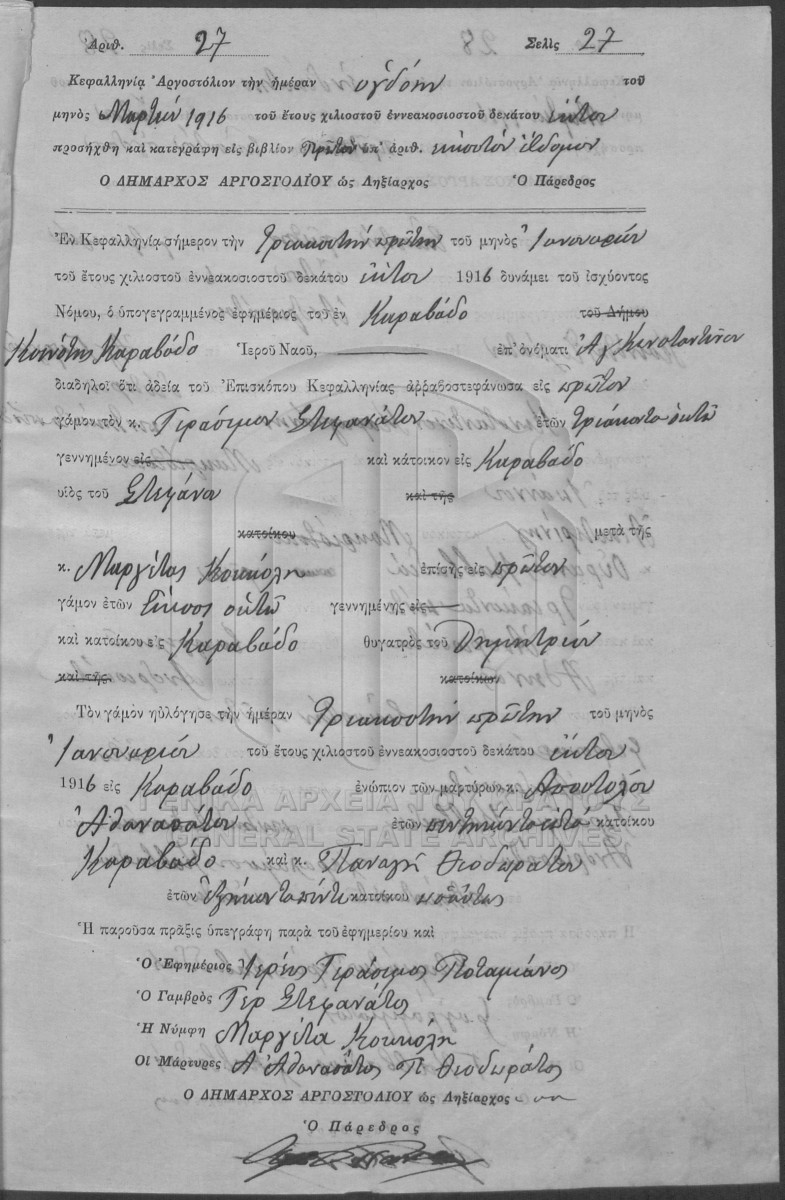 Ἀριθ. 27 Σελὶς 27
Κεφαλληνίᾳ Ἀργοστόλιον τὴν ἡμέραν ὀγδόην τοῦ
μηνὸς Μαρτίου 1916 τοῦ ἔτους χιλιοστοῦ ἐννεακοσιοστοῦ δεκάτου ἕκτου
προσήχθη καὶ κατεγράφη εἰς βιβλίον Πρῶτον ὑπ' ἀριθ. εἰκοστὸν ἕβδομον
Ο ΔΗΜΑΡΧΟΣ ΑΡΓΟΣΤΟΛΙΟΥ ὡς Ληξίαρχος Ὁ Πάρεδρος
Ἐν Κεφαλληνίᾳ σήμερον τὴν τριακοστὴν πρώτην τοῦ μηνὸς Ἰανουαρίου
τοῦ ἔτους χιλιοστοῦ ἐννεακοσιοστοῦ δεκάτου ἕκτου 1916 δυνάμει τοῦ ἰσχύοντος
Νόμου, ὁ ὑπογεγραμμένος ἐφημέριος τοῦ ἐν Καραβάδο τοῦ Δήμου
Κοινότης Καραβάδο Ἱεροῦ Ναοῦ, ἐπ' ὀνόματι Ἁγ Κωνσταντίνου
διαδηλοῖ ὅτι ἀδείᾳ τοῦ Ἐπισκόπου Κεφαλληνίας ἀρραβοστεφάνωσα εἰς πρῶτον
γάμον τὸν κ. Γεράσιμον Στεφανάτον ἐτῶν τριάκοντα ὀκτὼ
γεννημένον εἰς καὶ κάτοικον εἰς Καραβάδο
υἱὸς τοῦ Στεφάνου καὶ τῆς
κατοίκου μετὰ τῆς
κ. Μαργίτας Κουκόλη ἐπίσης εἰς πρῶτον
γάμον ἐτῶν εἴκοσι ὀκτὼ γεννημένης εἰς
καὶ κατοίκου εἰς Καραβάδο θυγατρὸς τοῦ Δημητρίου
καὶ τῆς κατοίκων
Τὸν γάμον ηὐλόγησε τὴν ἡμέραν τριακοστὴν πρώτην τοῦ μηνὸς
Ἰανουαρίου τοῦ ἔτους χιλιοστοῦ ἐννεακοσιοστοῦ δεκάτου ἕκτου
1916 εἰς Καραβάδο ἐνώπιον τῶν μαρτύρων κ. Αποστόλου
ΓΕΝΙΚΑ ΑΡΧΕΙΑ ΤΟΥ ΚΡΑΤΟΥΣ
Ἀθανασάτου ἐτῶν πεντήκοντα ἑπτὰ κατοίκου
GENERAL STATE ARCHIVES
Καραβάδο καὶ κ. Παναγῆ Θεοδωράτου
ἐτῶν ἑξήκοντα πέντε κατοίκου ὡσαύτως
Ἡ παροῦσα πρᾶξις ὑπεγράφη παρὰ τοῦ ἐφημερίου καὶ
Ὁ Ἐφημέριος Ἱερεὺς Γεράσιμος Ποταμιάνος
Ὁ Γαμβρὸς Γερ Στεφανάτος
Ἡ Νύμφη Μαργίτα Κουκόλη
Οἱ Μάρτυρες Α Ἀθανασάτος Π Θεοδωράτος
Ο ΔΗΜΑΡΧΟΣ ΑΡΓΟΣΤΟΛΙΟΥ ὡς Ληξίαρχος
Ὁ Πάρεδρος